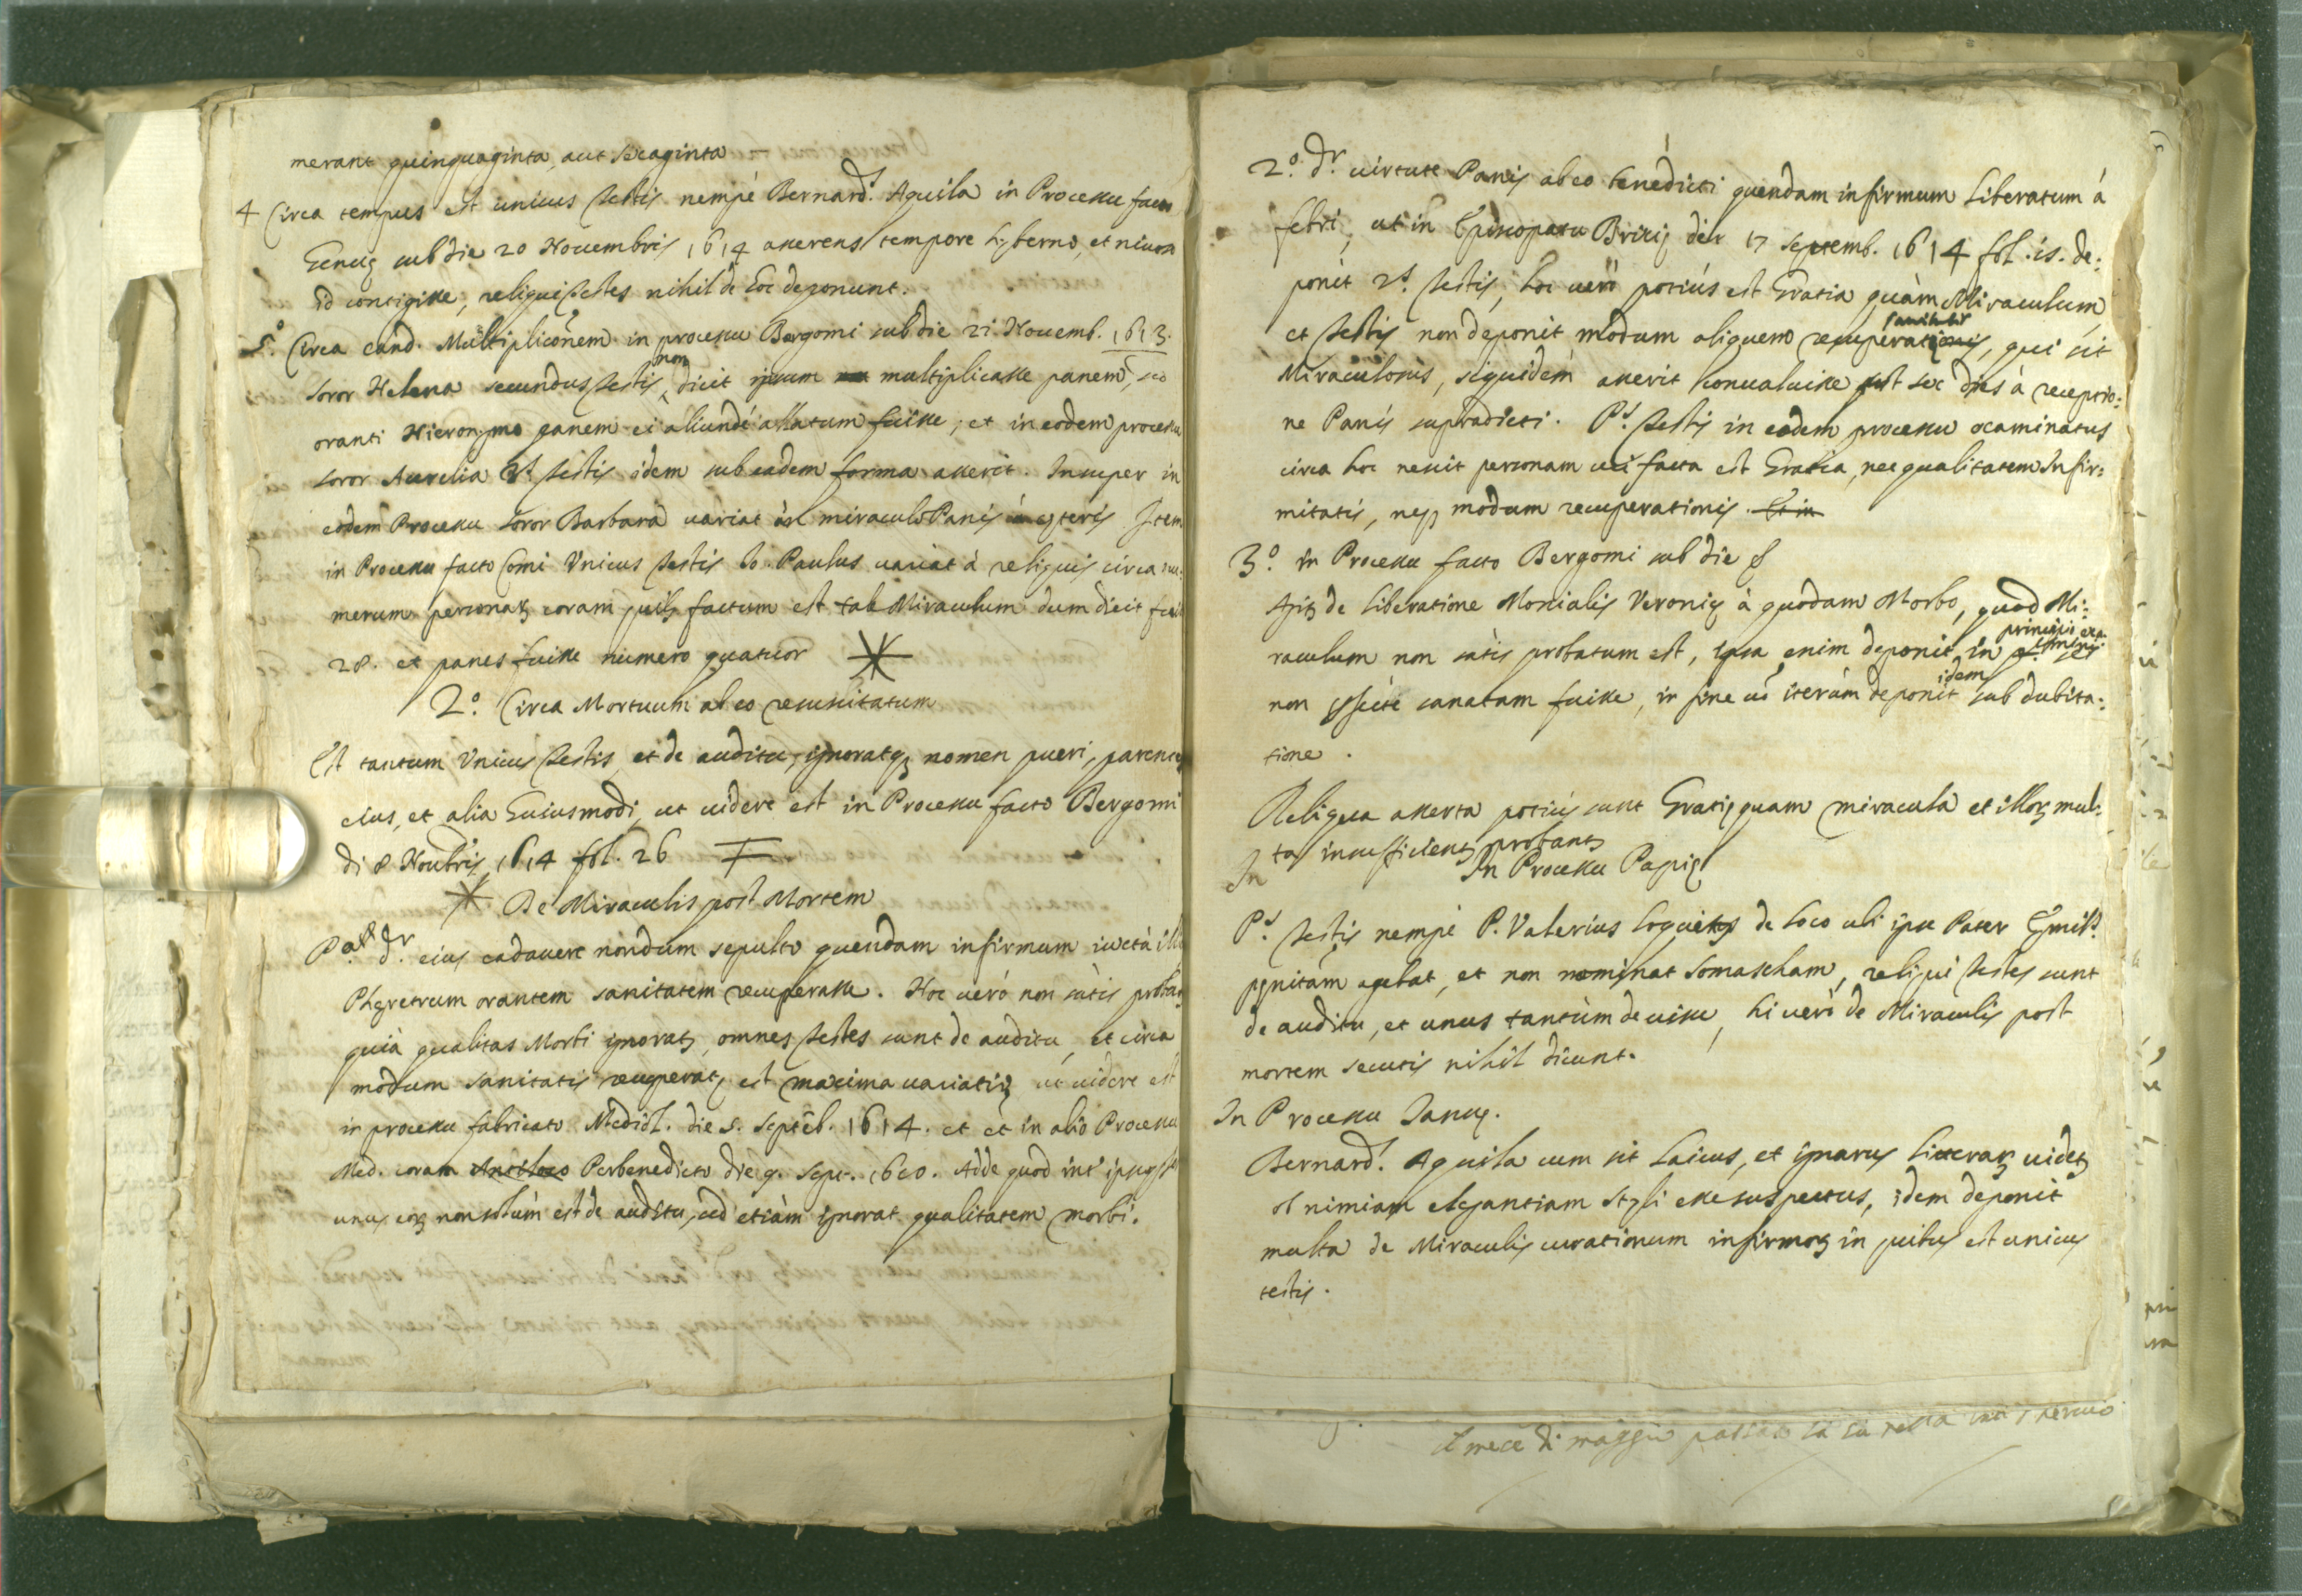 merant quinquaginta, aut sexaginta
4 Circa tempus est unicus testis nempè Bernard.s Aquila in Processu facto
Genuę sub die 20 Nouembris 1614 asserens tempore hyberno, et niuoso
id contigisse, reliqui testes nihil de hoc deponunt.
5.o Circa eand. Multiplicõnem in processu Bergomi sub die 21 Nouemb. 1613.
non
soror Helena secundus testis dicit ipsum multiplicasse panem, sed
oranti Hieronymo panem ei aliundè allatum fuisse; et in eodem processu
soror Aurelia testis idem sub eadem forma asserit. Insuper in
eodem Processu soror Barbara uariat in miraculo Panis à cęteris Item
in Processu facto Comi Unicus testis Io. Paulus uariat à reliquis circa nu:
merum personaꝝ coram quibꝫ factum est tale Miraculum dum dicit fuisse
28. et panes fuisse numero quatuor
2.o Circa Mortuum ab eo resuscitatum
Est tantum Unicus testis, et de auditu, ignoratqꝫ nomen pueri, parentes
eius, et alia huiusmodi, ut uidere est in Processu facto Bergomi
di 8 Noubris 1614 fol. 26
De Miraculis post Mortem
dr. eius cadauere nondum sepulto quendam infirmum iuxtà illi
Pheretrum orantem sanitatem recuperasse. Hoc uerò non satis probat
quià qualitas Morbi ignorat, omnes testes sunt de auditu, et circa
modum sanitatis recuperatę est maxima uariatio ut uidere est
in processu fabricato Mediol. die 5. Septẽb. 1614. et et in alio Processu
Med. coram Perbenedicto die 9. Sept. 1610. Adde quod int ipsos
unus eoꝝ non solùm est de auditu, sed etiàm ignorat qualitatem morbi.
2.o dr. uirtute Panis ab eo benedicti quendam infirmum liberatum à
febri, ut in Episcopatu Brixię die 17 Septemb. 1614 fol. 15. de:
ponit 2.s testis, hoc uerò potiùs est Gratia quàm Miraculum,
sanitatis
et testis non deponit modum aliquem recuperationis, qui sit
Miraculosus, siquidem asserit conualuisse post sex dies à receptio:
ne Panis supradicti. P.s testis in eodem processu examinatus
circa hoc nescit personam cui facta est Gratia, nec qualitatem Infir:
mitatis, neqꝫ modum recuperationis. Et in
3.o in Processu facto Bergomi sub die 8
Apis de liberatione Monialis Veronię à quodam Morbo, quod Mi:
principio exa:
minis
raculum non satis probatum est, ipsa enim deponit in
idem
non sanatam fuisse, in fine uò iterùm deponit sub dubita:
tione.
Reliqua asserta potiùs sunt Gratię quam miracula et illoꝝ mul:
ta insufficient probant
In
In Processu Papię
P.s testis nempè P. Valerius loquitur de loco ubi ipse Pater Ęmil.s
pęnitam agebat, et non nominat Somascham, reliqui testes sunt
de auditu, et unus tantùm de uisu, hi uerò de Miraculis post
mortem secutis nihil dicunt.
In Processu Ianuę.
Bernard.s Aquila cum sit laicus, et ignarus literaꝝ uidet
ob nimiam elegantiam styli esse suspectus, idem deponit
multa de Miraculis curationum infirmoꝝ in quibus est unicus
testis.
il mese di maggio passato